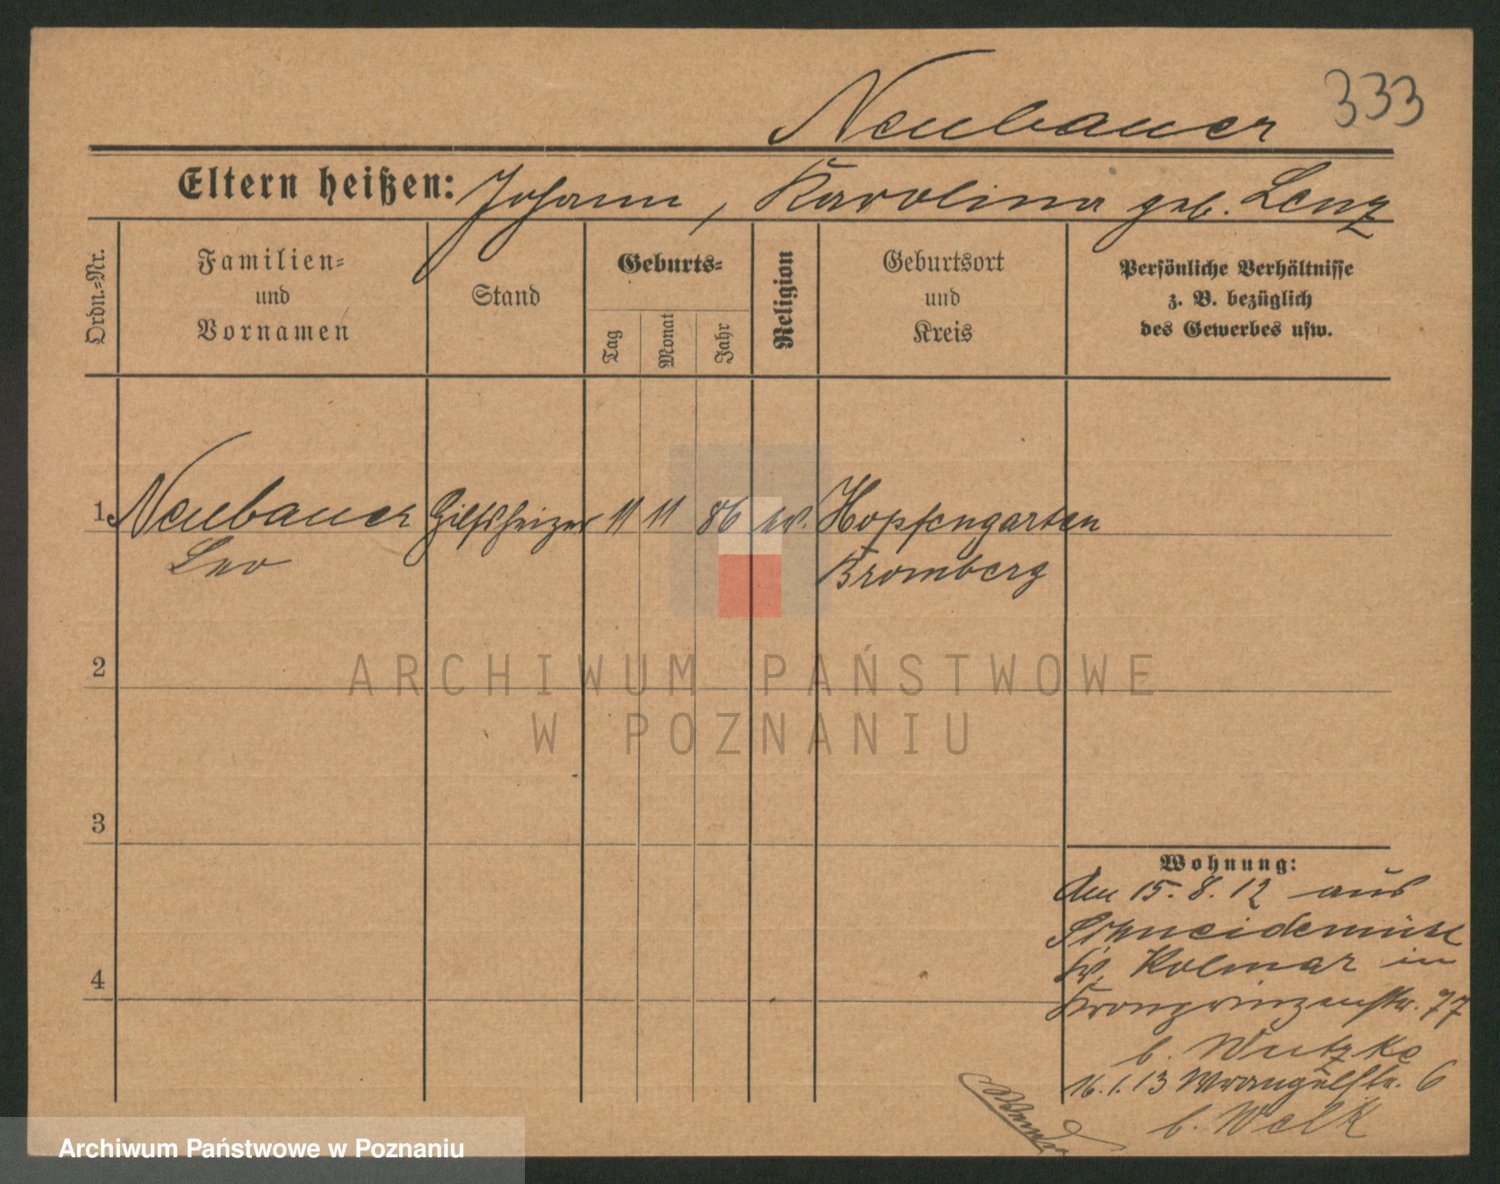 Neubauer 333
Eltern heißen: Johann, Karolina geb. Lenz
Ordn.-Nr.
Familien-
und
Vornamen
Stand
Geburts-
Tag
Monat
Jahr
Religion
Geburtsort
und
Kreis
Persönliche Verhältnisse
z. B. bezüglich
des Gewerbes usw.
1 Neubauer Hilfsheizer 11 11 86 ev. Hopfengarten
Leo Bromberg
2
ARCHIWUM PAŃSTWOWE
W POZNANIU
3
4
Wohnung:
Am 15.8.12 aus
Schneidemühl
Kr. Kolmar in
Kronprinzenstr. 77
b. Wutzke
16.1.13 Wrangelstr. 6
b. Welk
Archiwum Państwowe w Poznaniu